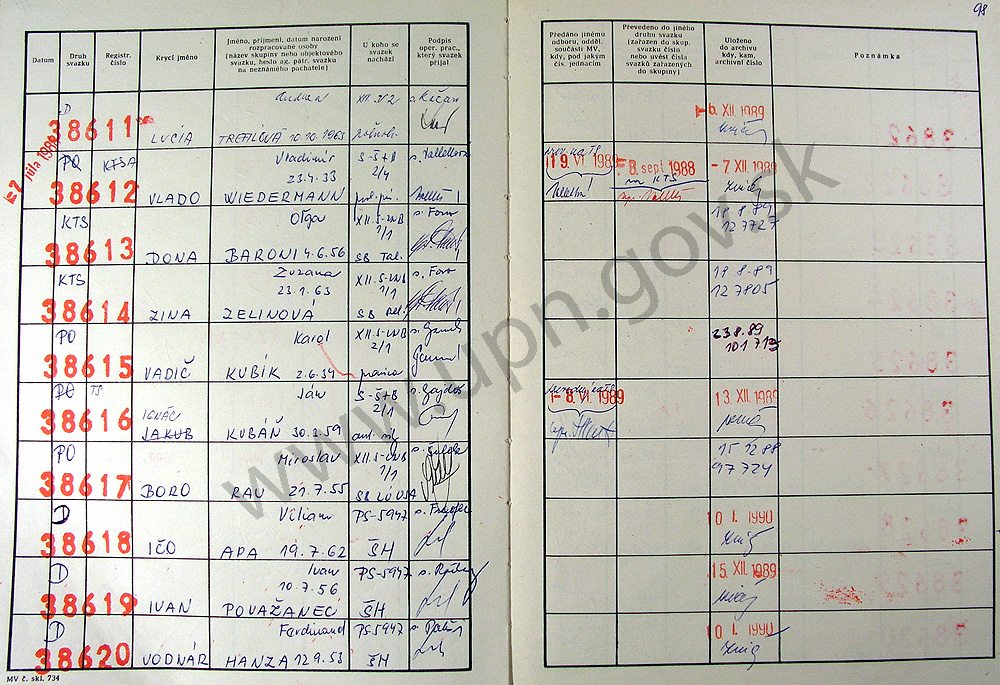 98
Datum
Druh svazku
Registr. číslo
Krycí jméno
Jméno, příjmení, datum narození rozpracované osoby (název skupiny nebo objektového svazku, heslo ag. pátr. svazku na neznámého pachatele)
U koho se svazek nachází
Podpis oper. prac., který svazek přijal
Předáno jinému odboru, odděl. součásti MV, kdy, pod jakým čís. jednacím
Převedeno do jiného druhu svazku (zařazen do skup. svazku číslo nebo uvést čísla svazků zařazených do skupiny)
Uloženo do archivu kdy, kam, archivní číslo
Poznámka
D
38611
LUCIA
TREFILOVÁ 10.10.1963
6. XII. 1989
7 júla 1988
PO KTSA
38612
VLADO
Vladimír
23.4.33
WIEDERMANN
S-Š+B
2/4
19. VI. 1989
8. sept 1988
- 7 XII. 1989
KTS
38613
DONA
Oľga
BARONI 4.6.56
XII.S-VNB
1/1
18.8.89
127727
KTS
38614
ZINA
Zuzana
23.1.63
ZELINOVÁ
XII.S-VNB
1/1
18.8.89
127805
PO
38615
VADIČ
Karol
KUBÍK 2.6.34
XII.S-VNB
2/1
23.8.89
101713
PO TS
38616
IGNÁC
JAKUB
Ján
KUBÁŇ 30.2.59
S-Š+B
2/1
- 8. VI. 1989
13. XII. 1989
PO
38617
BORO
Miroslav
RAU 21.7.55
XII.S-VNB
1/1
15 12 88
97724
D
38618
IČO
Viliam
APA 19.7.62
PS-5947
ŠH
10 I. 1990
D
38619
IVAN
Ivan
10.7.56
POVAŽANEC
PS-5947
ŠH
15. XII. 1989
D
38620
VODNÁR
Ferdinand
HANZA 12.9.53
PS-5947
ŠH
10 I. 1990
MV č. skl. 734
www.upn.gov.sk